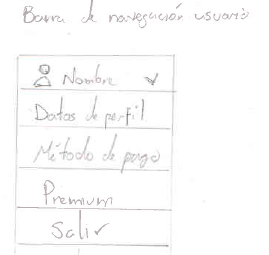 Barra de navegación usuario
Nombre
Datos de perfil
Método de pago
Premium
Salir